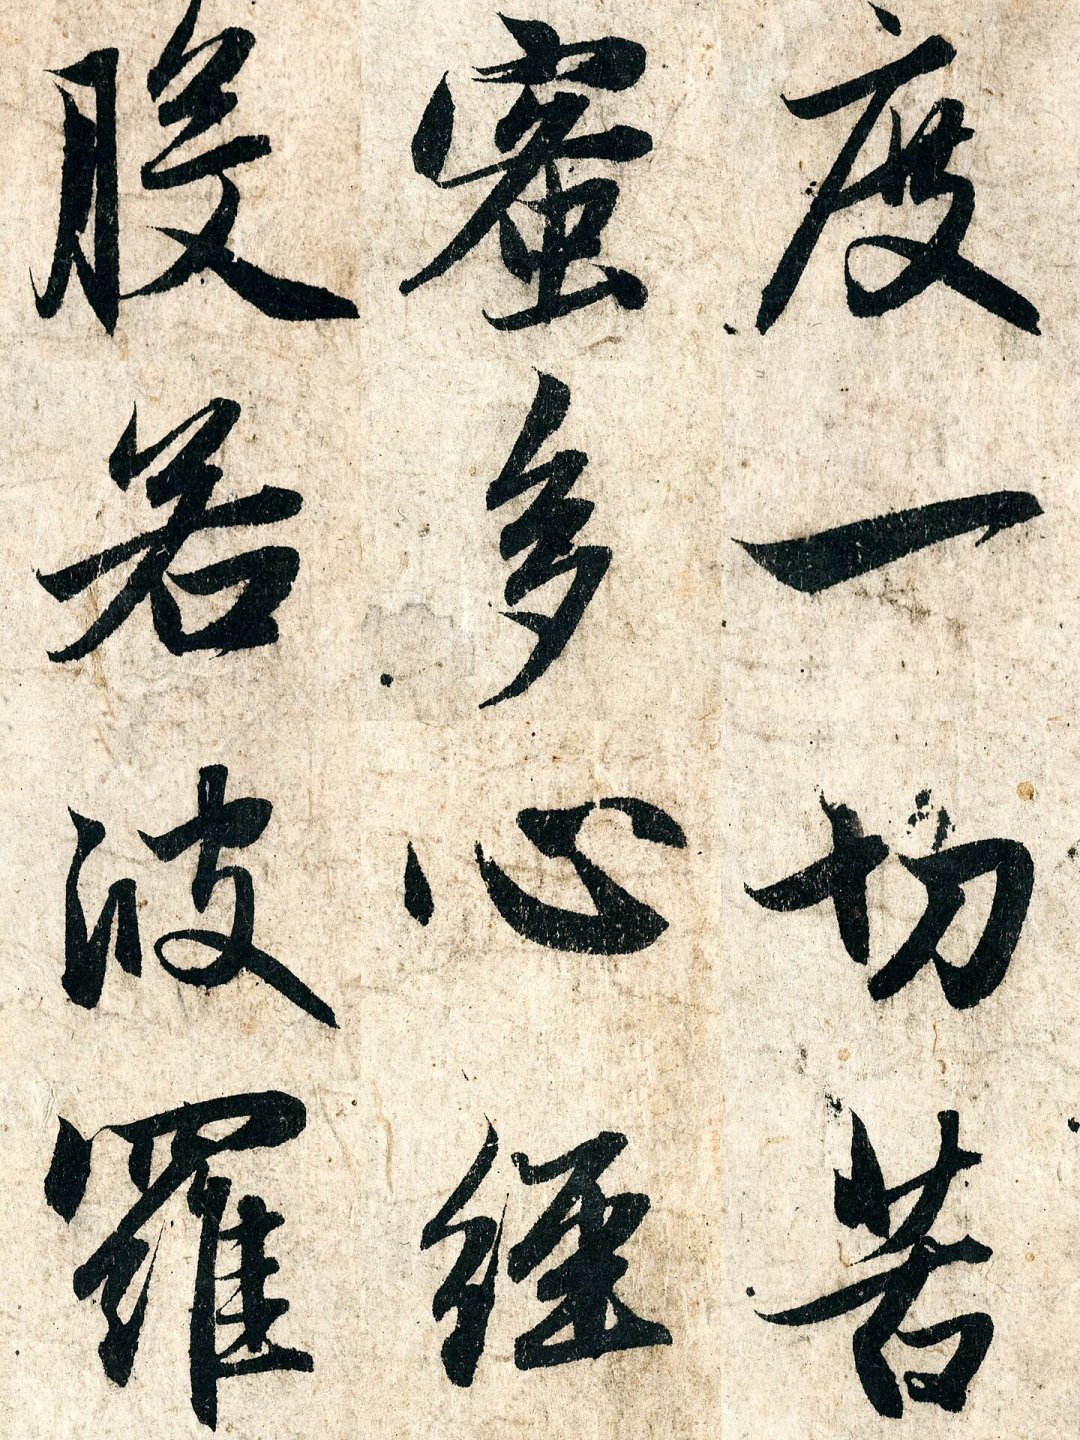 般若波羅
蜜多心經
度一切苦